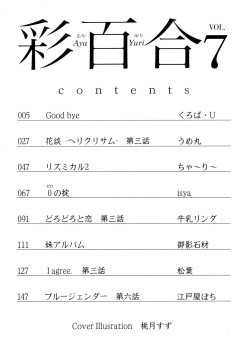 彩百合 VOL.7
あや ゆり
Aya Yuri
contents
005 Good bye くろば・U
027 花談 -ヘリクリサム- 第三話 うめ丸
047 リズミカル2 ちゃ～り～
067 0の掟 isya
091 どろどろと恋 第三話 牛乳リンダ
111 妹アルバム 御影石材
127 I agree. 第三話 松葉
147 ブルージェンダー 第六話 江戸屋ぽち
Cover Illusration 桃月すず